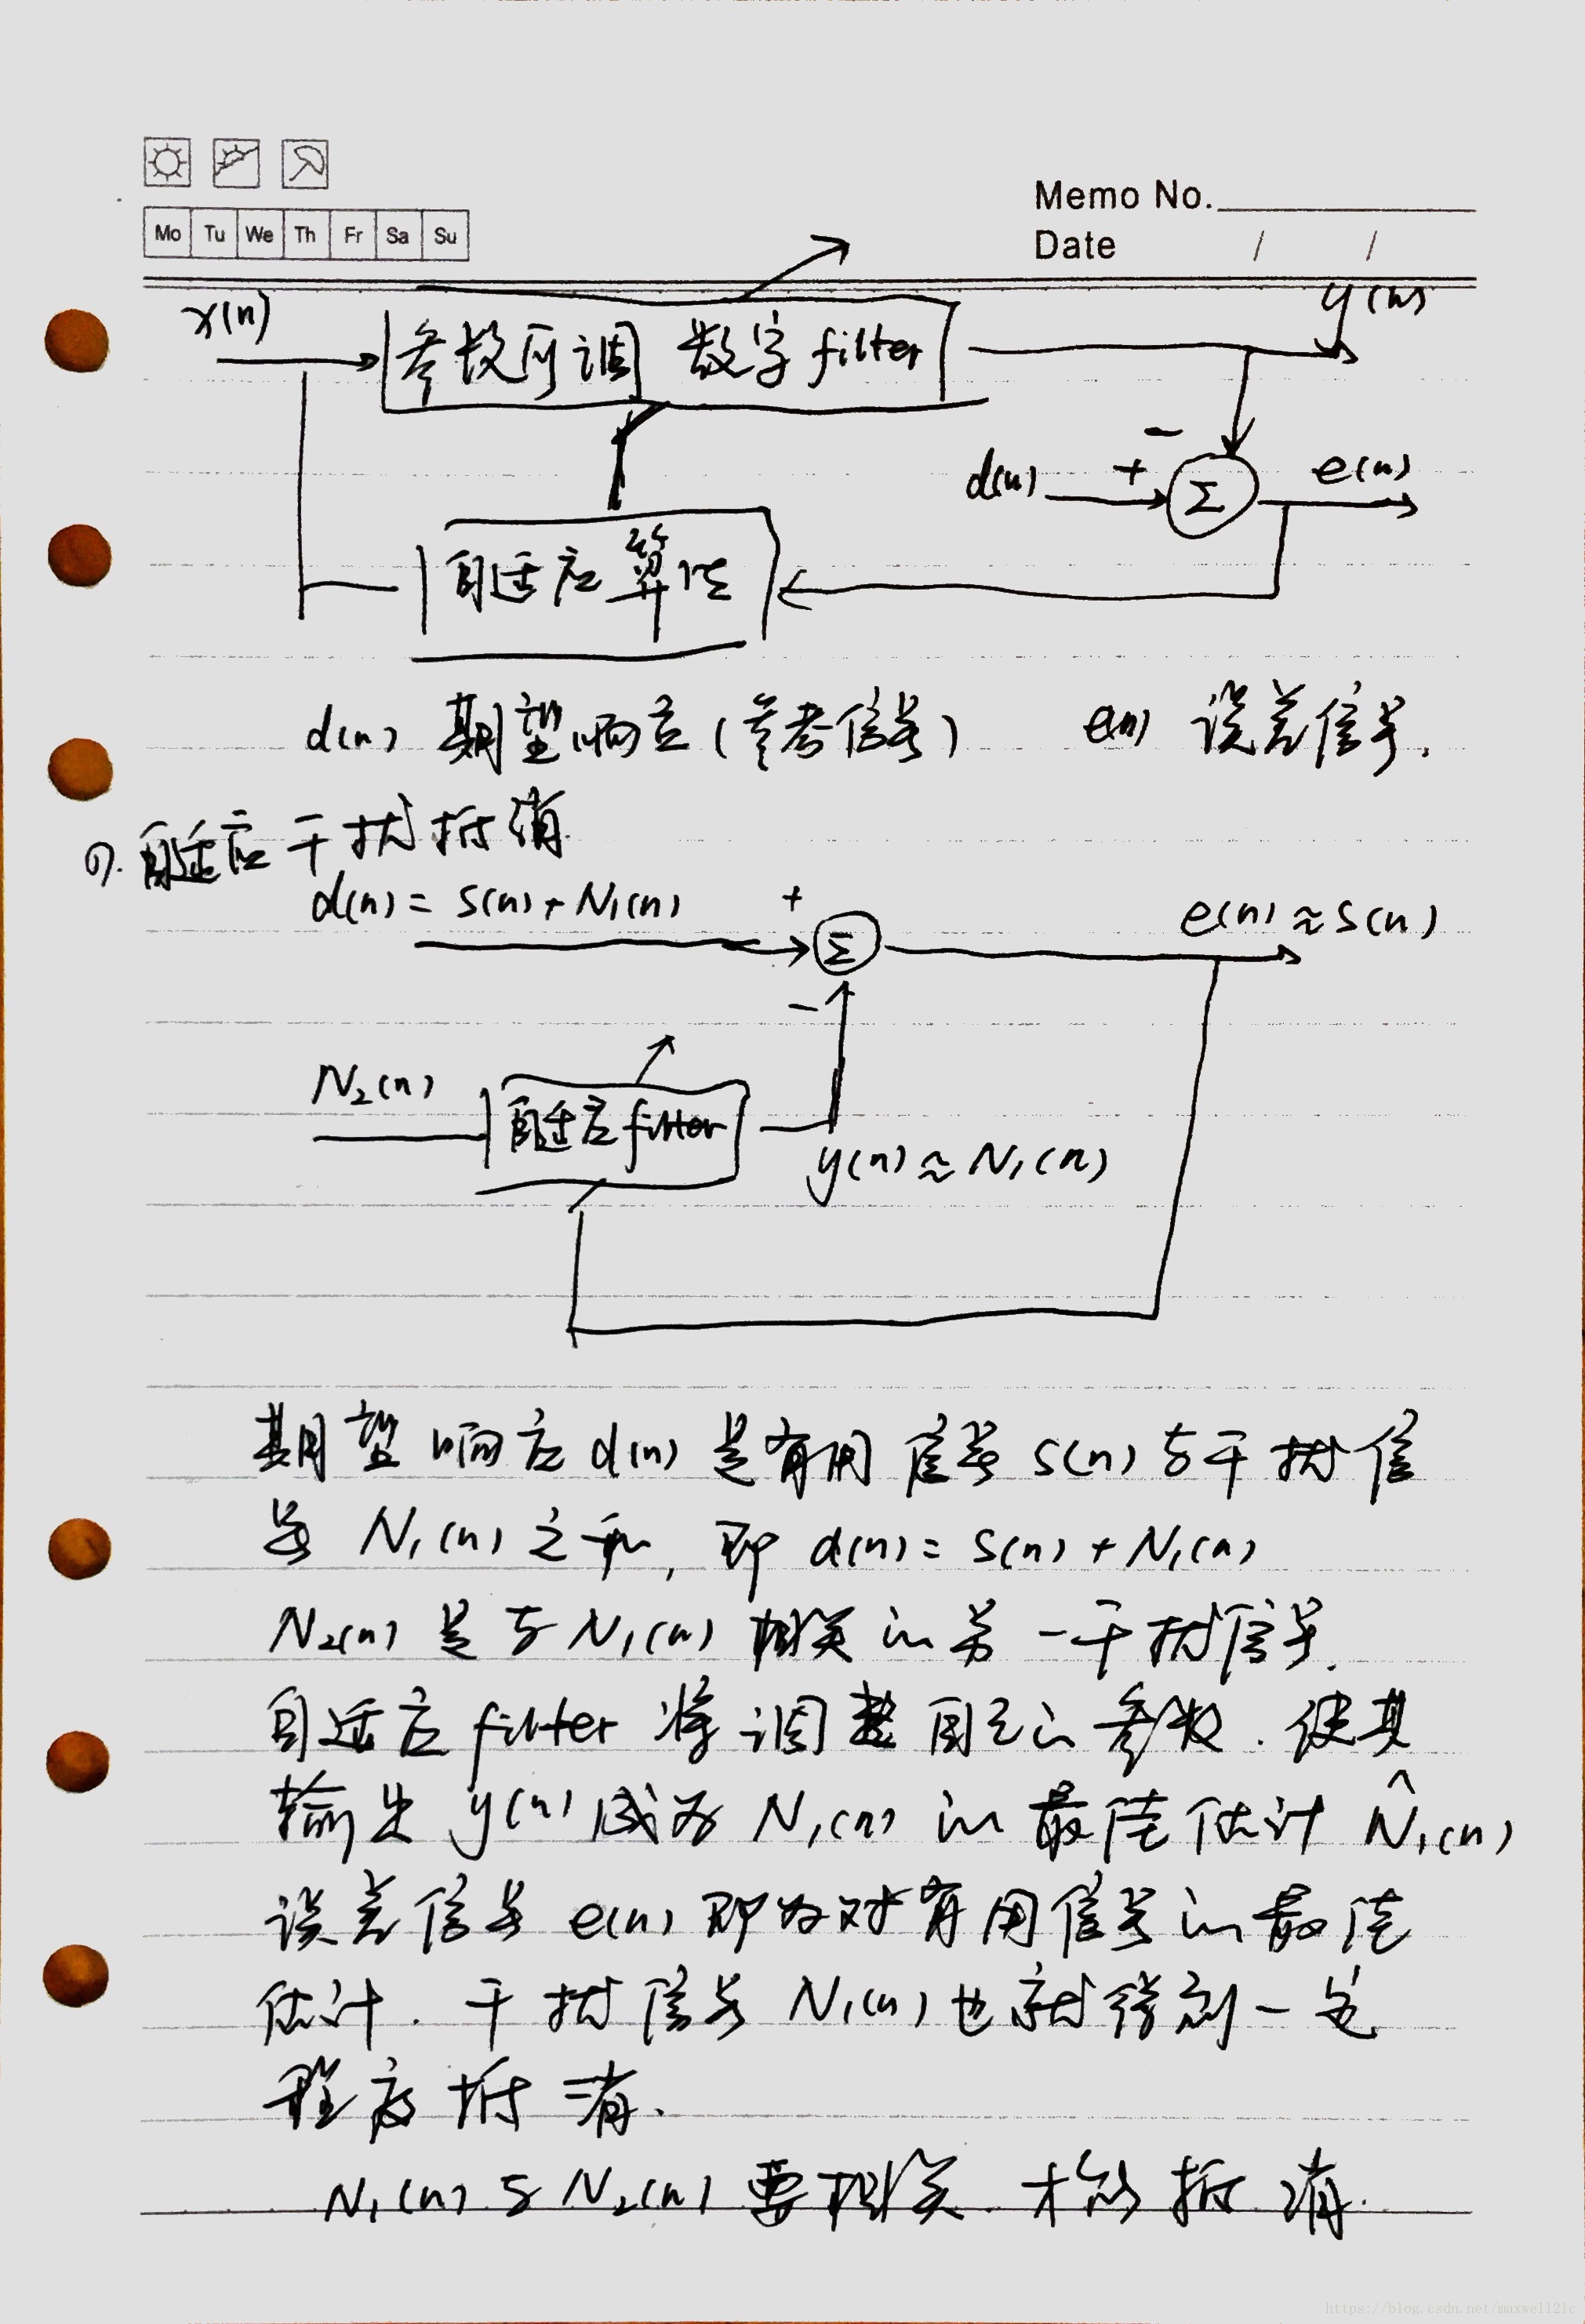 Memo No.
Mo Tu We Th Fr Sa Su
Date / /
x(n)
y(n)
参数可调 数字 filter
−
d(n) + Σ e(n)
自适应算法
d(n) 期望响应(参考信号) e(n) 误差信号.
自适应干扰抵消
d(n) = S(n) + N₁(n) + Σ e(n) ≈ S(n)
−
N₂(n)
自适应 filter
y(n) ≈ N₁(n)
期望响应 d(n) 是有用信号 S(n) 与干扰信
号 N₁(n) 之和, 即 d(n) = S(n) + N₁(n)
N₂(n) 是与 N₁(n) 相关的另一干扰信号.
自适应 filter 将调整自己的参数. 使其
输出 y(n) 成为 N₁(n) 的最佳估计 N̂₁(n)
误差信号 e(n) 即为对有用信号的最佳
估计. 干扰信号 N₁(n) 也就得到一定
程度抵消.
N₁(n) 与 N₂(n) 要相关. 才能抵消.
https://blog.csdn.net/maxwell2ic